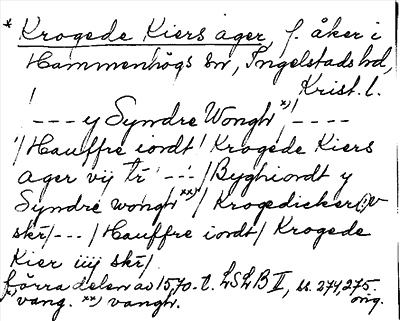 * Krogede Kiers ager, f. åker i
Hammenhögs sn, Ingelstads hd,
Krist. l.
/ --- y Syndre Wongh *) / ----
/ Hauffre iordt / Krogede Kiers
ager vij tr --- / Byghiordt y
Syndre wongh **) / Krogedieker (:) v
skr / --- / Hauffre iordt / Krogede
Kier iiij skr /
förra delen av 1570. t. LSLB II, ss. 274, 275.
*) vang. **) vangh. orig.